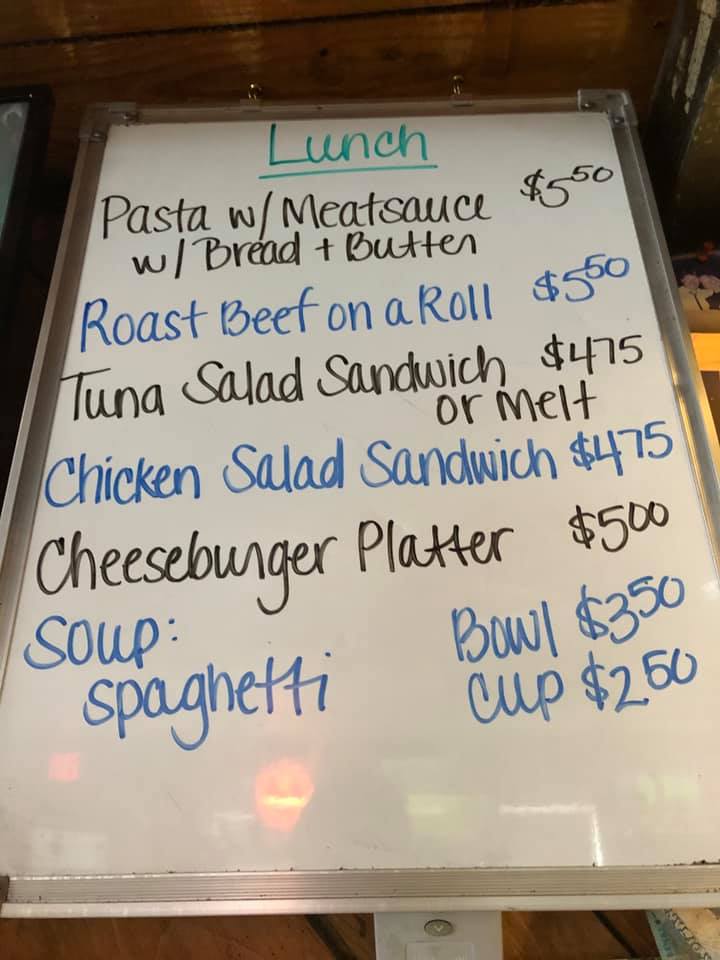 Lunch
Pasta w/ Meatsauce $5 50
w/ Bread + Butter
Roast Beef on a Roll $5 50
Tuna Salad Sandwich $4 75
or Melt
Chicken Salad Sandwich $4 75
Cheeseburger Platter $5 00
Soup: Bowl $3 50
spaghetti Cup $2 50